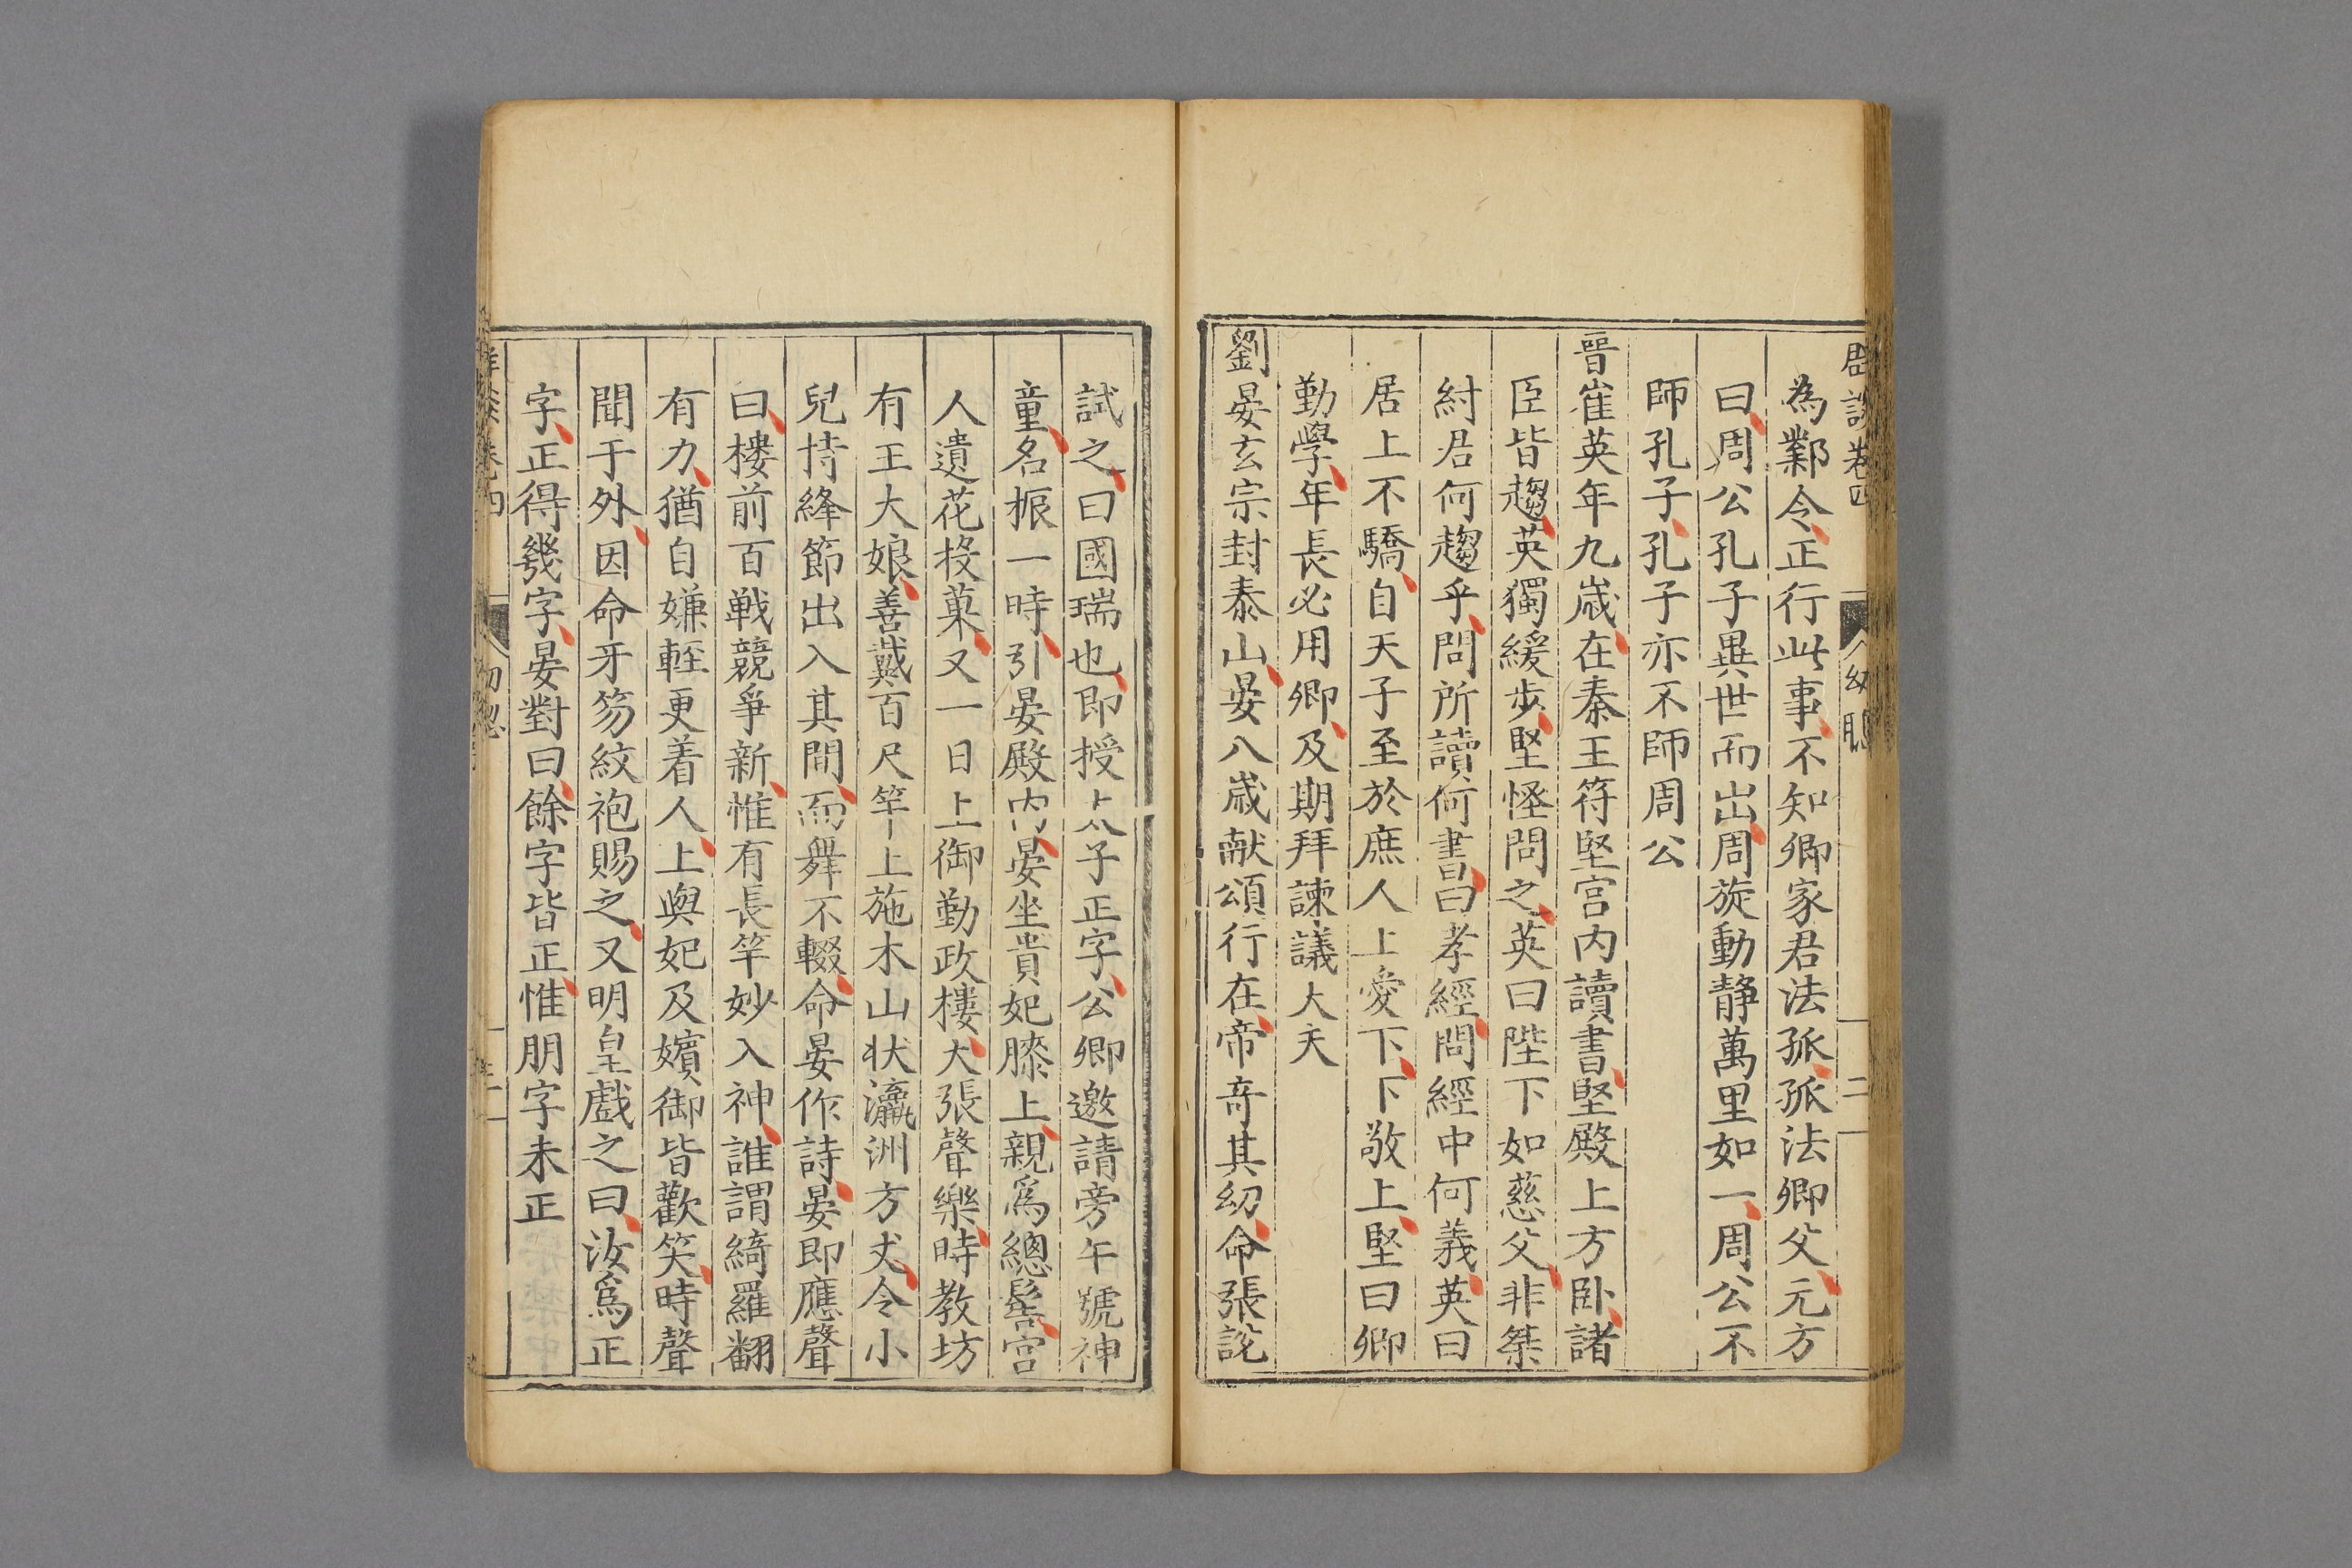 為鄴令正行此事不知卿家君法孤孤法卿父元方
曰周公孔子異世而出周旋動靜萬里如一周公不
師孔子孔子亦不師周公
晉崔英年九歲在秦王符堅宮内讀書堅殿上方卧諸
臣皆趨英獨緩步堅怪問之英曰陛下如慈父非桀
紂君何趨乎問所讀何書曰孝經問經中何義英曰
居上不驕自天子至於庶人上愛下下敬上堅曰卿
勤學年長必用卿及期拜諫議大夫
劉晏玄宗封泰山晏八歲献頌行在帝竒其幼命張說
試之曰國瑞也即授太子正字公卿邀請旁午號神
童名振一時引晏殿内晏坐貴妃膝上親爲總髻宮
人遺花投菓又一日上御勤政樓大張聲樂時教坊
有王大娘善戴百尺竿上施木山状瀛洲方丈令小
兒持絳節出入其間而舞不輟命晏作詩晏即應聲
曰樓前百戦競爭新惟有長竿妙入神誰謂綺羅翻
有力猶自嫌輕更着人上與妃及嬪御皆歡笑時聲
聞于外因命牙笏紋袍賜之又明皇戲之曰汝爲正
字正得幾字晏對曰餘字皆正惟朋字未正